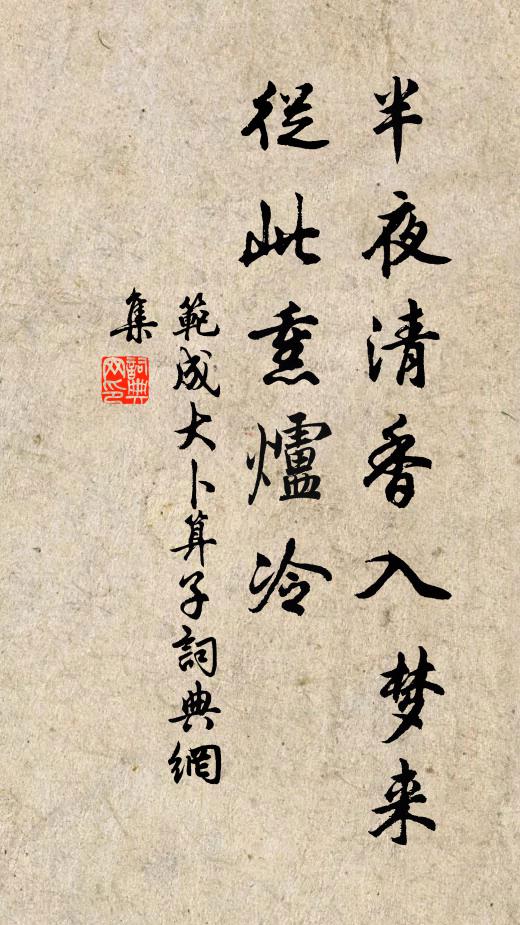 半夜清香入梦来
従此熏爐冷
範成大卜算子詞典網
集
詞典
网印